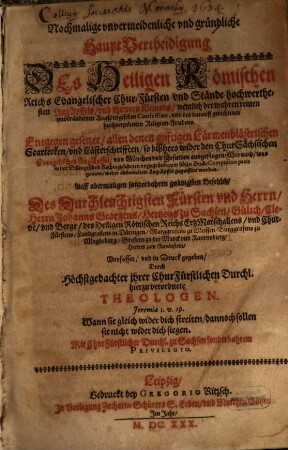 Collegij Societatis Monachij, 1631.
Nochmalige vnvermeidenliche vnd gründliche
Haupt Vertheidigung
Des Heiligen Römischen
Reichs Evangelischer Chur-Fürsten vnd Stände hochwerthe-
sten
Religion Frieden.
Entgegen gesetzt / allen denen gifftigen Lärmenbläserischen
Scartecken / vnd Lästerschrifften / so bißhero wider den ChurSächsischen
Evangelischen
von Mönchen vnd Jhesuiten ausgesprenget / Wie auch / was
Auff abermaligen sonderbahren gnädigsten Befehlich /
Des Durchleuchtigsten Fürsten vnd Herrn /
Herrn Johanns Georgens / Hertzogs zu Sachsen / Gülich / Cle-
ve / vnd Berge / des Heiligen Römischen Reichs ErtzMarschallens / vnd Chur-
Fürstens / Landgraffens in Düringen / Marggraffens zu Meissen / Burggraffens zu
Magdeburg / Graffens zu der Marck vnd Ravensburg /
Herrns zum Ravenstein /
Verfasset / vnd in Druck gegeben /
Durch
Höchstgedachter ihrer ChurFürstlichen Durchl.
hierzu verordnete
THEOLOGEN.
Jeremiæ 1. v. 19.
Wann sie gleich wider dich streiten / dannoch sollen
sie nicht wider dich siegen.
Mit Chur Fürstlicher Durchl. zu Sachsen sonderbahrem
PRIVILEGIO.
Leipzig /
Gedruckt bey GREGORIO Ritzsch.
In Verlegung Zachariæ Schürers S. Erben / vnd Matthiæ Götzen
Im Jahr /
M. DC. XXX.